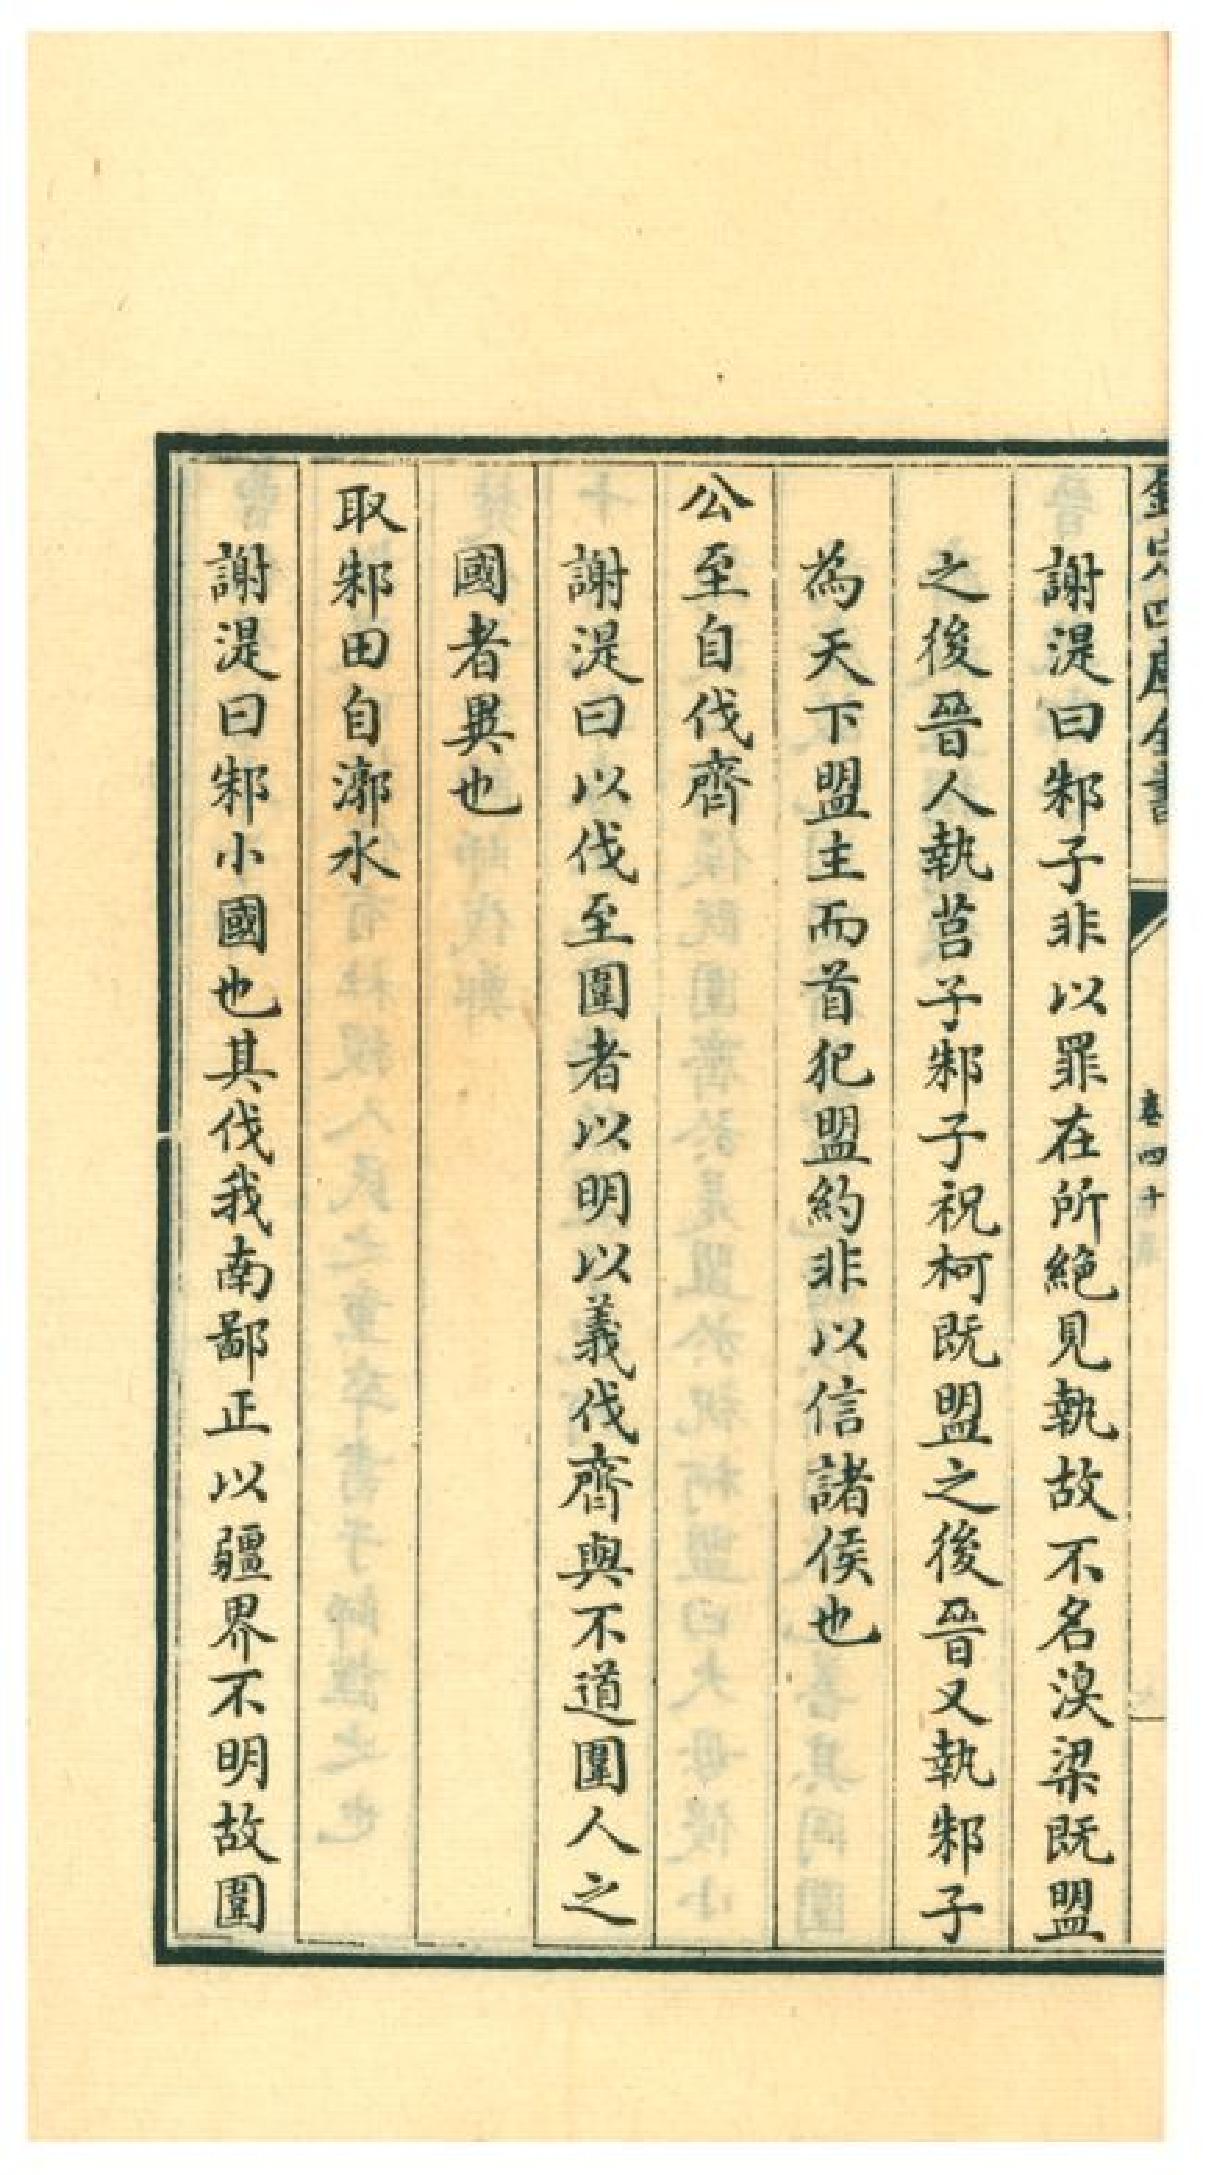 欽定四庫全書
卷四十
謝湜曰邾子非以罪在所絶見執故不名湨梁既盟
之後晉人執莒子邾子祝柯既盟之後晉又執邾子
為天下盟主而首犯盟約非以信諸侯也
公至自伐齊
謝湜曰以伐至圍者以明以義伐齊與不道圍人之
國者異也
取邾田自漷水
謝湜曰邾小國也其伐我南鄙正以疆界不明故圍